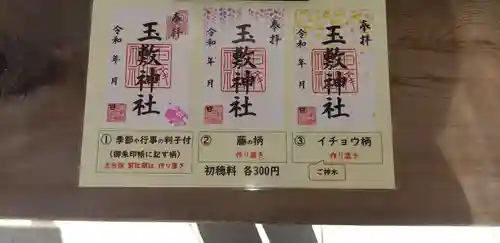 奉拝
玉敷神社
令和 年 月 日
奉拝
玉敷神社
令和 年 月 日
奉拝
玉敷神社
令和 年 月 日
① 季節や行事の判子付
(御朱印帳に記す柄)
② 藤の柄
作り置き
③ イチョウ柄
作り置き
ご神木
初穂料 各300円